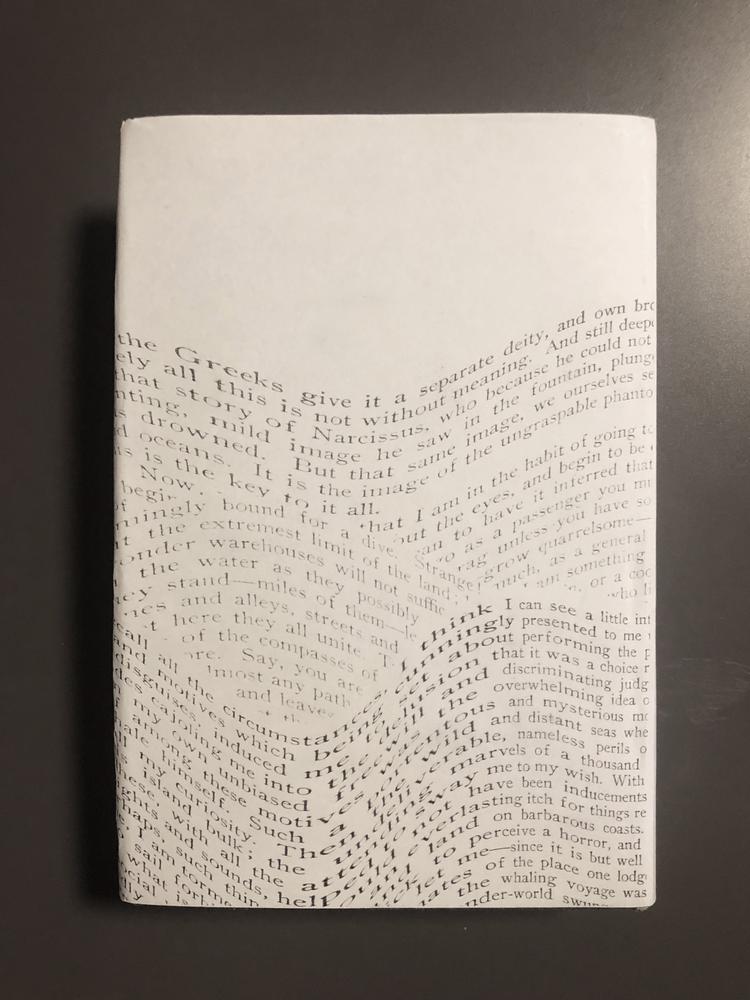 the Greeks give it a separate deity, and own bro
ely all this is not without meaning. And still deepe
that story of Narcissus, who because he could not
nting, mild image he saw in the fountain, plung
s drowned. But that same image, we ourselves se
d oceans. It is the image of the ungraspable phanto
is is the key to it all.
Now, hat I am in the habit of going to
begin out the eyes, and begin to be
mingly bound for a dive. Strange! an to have it inferred that
t the extremest limit of the land; o as a passenger you mu
onder warehouses will not suffic rag unless you have so
the water as they possibly grow quarrelsome—
ey stand—miles of them—le much, as a general
nes and alleys, streets and am something
t here they all unite. T or a coo
of the compasses of who li
are. Say, you are
lmost any path
and leave
I think I can see a little int
call all the circumstances, cunningly presented to me
and motives which being about performing the p
disguises, induced me sion that it was a choice r
des cajoling me into the and discriminating judg
my own the overwhelming idea o
among unbiased tous and mysterious mo
himself these motives wild and distant seas whe
my curiosity. Such able, nameless perils o
island bulk; the marvels of a thousand
these, with all the way me to my wish. With
ights and sounds, not have been inducements
haps, such thin everlasting itch for things re
I am tormen land on barbarous coasts.
sail forb to perceive a horror, and
cial is help let me—since it is but well
dly ates of the place one lodg
the whaling voyage was
nder-world swung